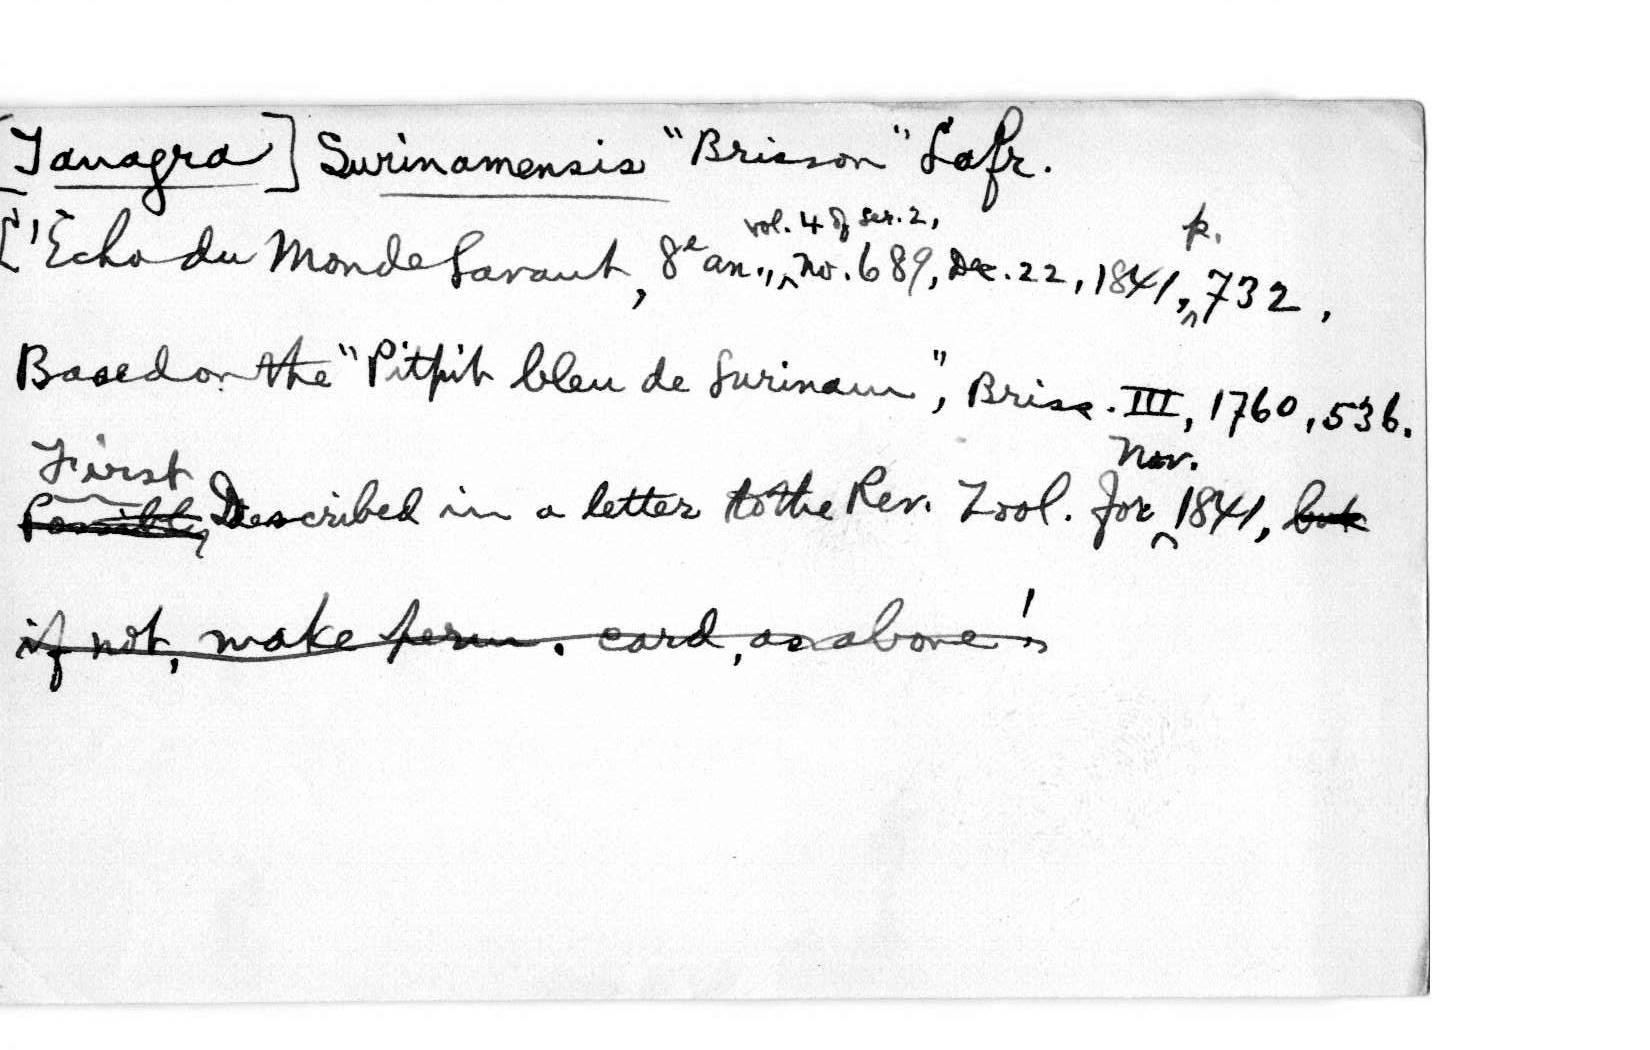 [Tanagra] Surinamensis "Brisson" Lafr.
L'Echo du Monde Savant, 8e an., vol. 4 of ser. 2, no. 689, Dec. 22, 1841, p. 732,
Based on the "Pitpit bleu de Surinam", Briss. III, 1760, 536.
First Possibly Described in a letter to the Rev. Zool. for Nov. 1841, but
if not, make perm. card, as above!